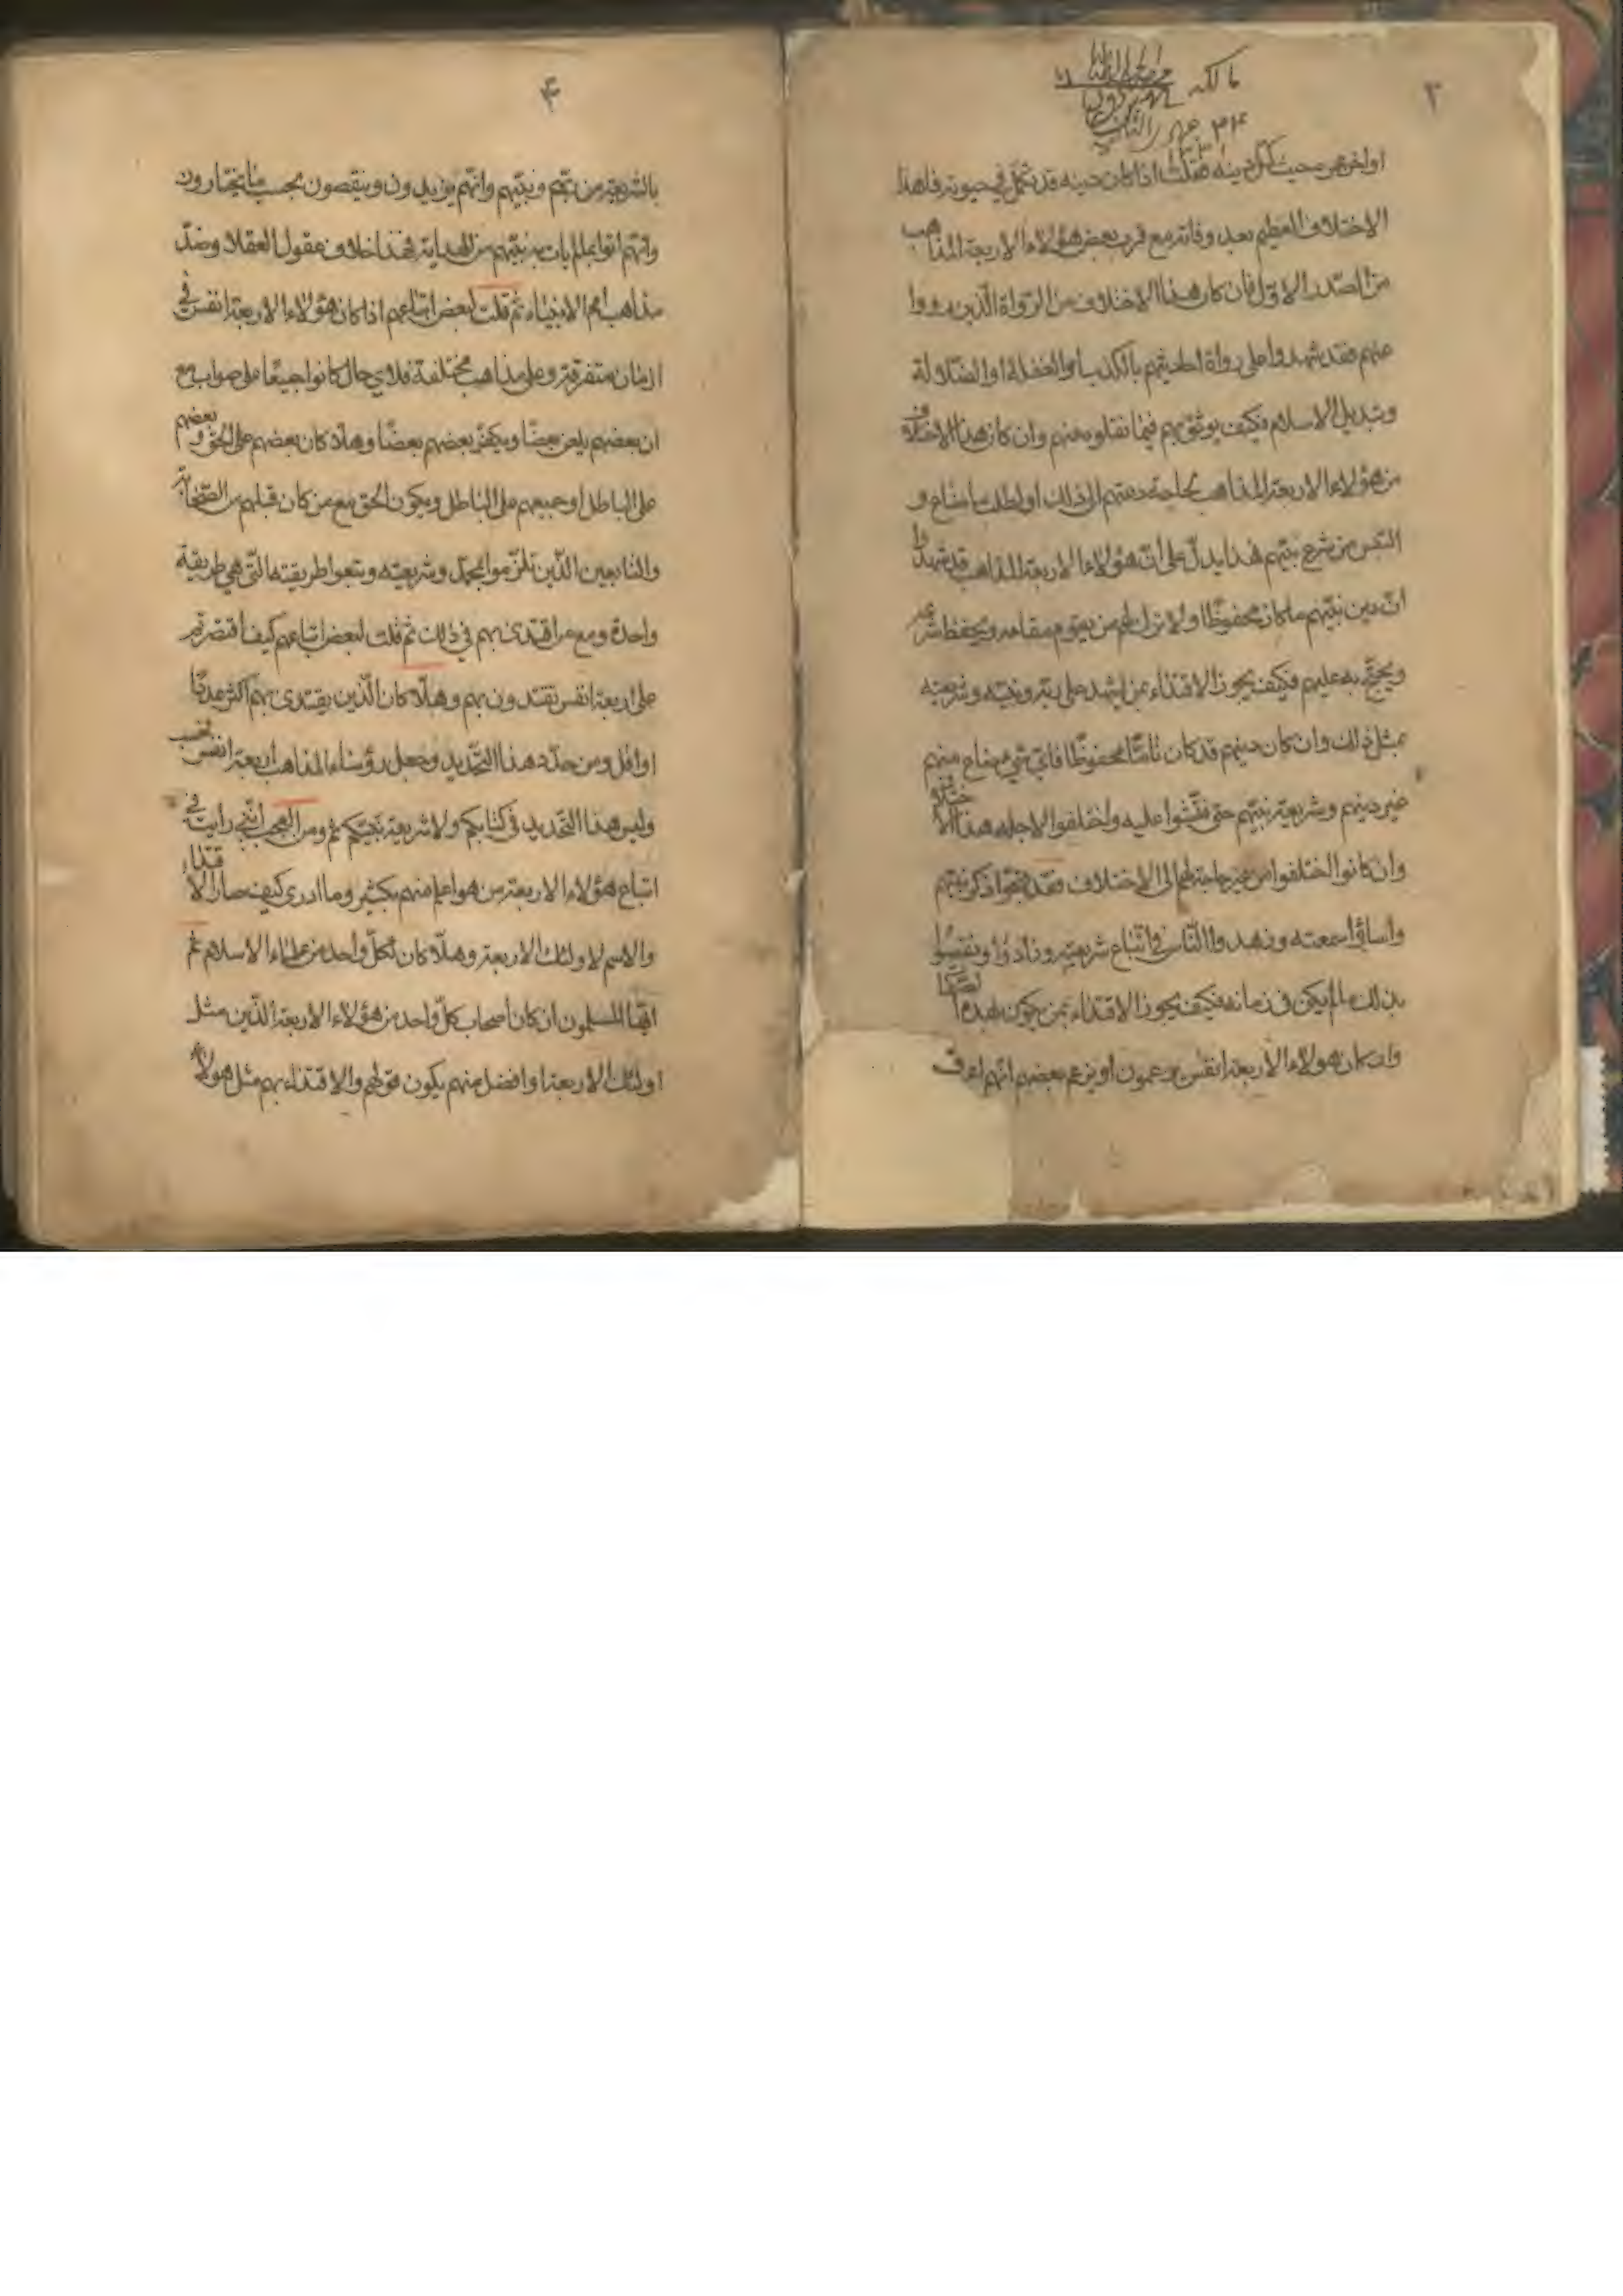 ٣
مالكه
٣٤
او اخرين بحيث كمل دينه فقلت اذا كان دينه قد تكمل في حيوته فما هذا
الاختلاف العظيم بعد وفاته مع قرب بعض هؤلاء الاربعة المذاهب
من الصدر الاول فان كان هذا الاختلاف من الرواة الذين رووا
عنهم فقد شهدوا على رواة احاديثهم بالكذب او الغفلة او الضلالة
وتبديل الاسلام فكيف يوثق بهم فيما نقلوه عنهم وان كان هذا الاختلاف
من هؤلاء الاربعة المذاهب لحاجة دعتهم الى ذلك او لطلب ما ضاع و
التبس من شرع نبيهم فهذا يدل على ان هؤلاء الاربعة المذاهب قد شهدوا
ان دين نبيهم ما كان محفوظا ولا ترك لهم من يقوم مقامه ويحفظ شرعه
ويحتج به عليهم فكيف يجوز الاقتداء بمن يشهد على ربه ونبيه وشريعته
بمثل ذلك وان كان دينهم قد كان تاما محفوظا فاي شيء ضاع منهم
غير دينهم وشريعة نبيهم حتى فتشوا عليه واختلفوا لاجله هذا الاختلاف
وان كانوا اختلفوا من غير حاجة لهم الى الاختلاف فقد قبحوا ذكر نبيهم
واساؤا سمعته وزهدوا الناس في اتباع شريعته وزادوا ونقصوا
بذلك ما لم يكن في زمانه فكيف يجوز الاقتداء بمن يكون بهذه الصفات
وان كان هؤلاء الاربعة انفس يزعمون او يزعم بعضهم انهم اعرف
٤
بالشريعة من ربهم ونبيهم وانهم يزيدون وينقصون بحسب ما يختارون
وانهم اتوا بما لم يات به نبيهم من الهداية فهذا خلاف عقول العقلاء وضد
مذاهب امم الانبياء ثم قلت لبعض اتباعهم اذا كان هؤلاء الاربعة انفس في
ازمان متفرقة وعلى مذاهب مختلفة فلاي حال كانوا جميعا على صواب مع
ان بعضهم يلعن بعضا ويكفر بعضهم بعضا وهلا كان بعضهم على الحق وبعضهم
على الباطل او جميعهم على الباطل ويكون الحق مع من كان قبلهم من الصحابة
والتابعين الذين تلزموا بمحمد وشريعته وتبعوا طريقته التي هي طريقة
واحدة ومع من اقتدى بهم في ذلك ثم قلت لبعض اتباعهم كيف اقتصرتم
على اربعة انفس تقتدون بهم وهلا كان الذين يقتدى بهم اكثر عددا
او اقل ومن حدد هذا التحديد وجعل رؤساء المذاهب اربعة انفس فحسب
وليس هذا التحديد في كتابكم ولا شريعة نبيكم ثم ومن العجب انني رايت في
اتباع هؤلاء الاربعة من هو اعلم منهم بكثير وما ادرى كيف صار الاقتداء
والاسم لاولئك الاربعة وهلا كان لكل واحد من علماء الاسلام ثم
ايها المسلمون ان كان اصحاب كل واحد من هؤلاء الاربعة الذين مثل
اولئك الاربعة او افضل منهم يكون قولهم والاقتداء بهم مثل هؤلاء